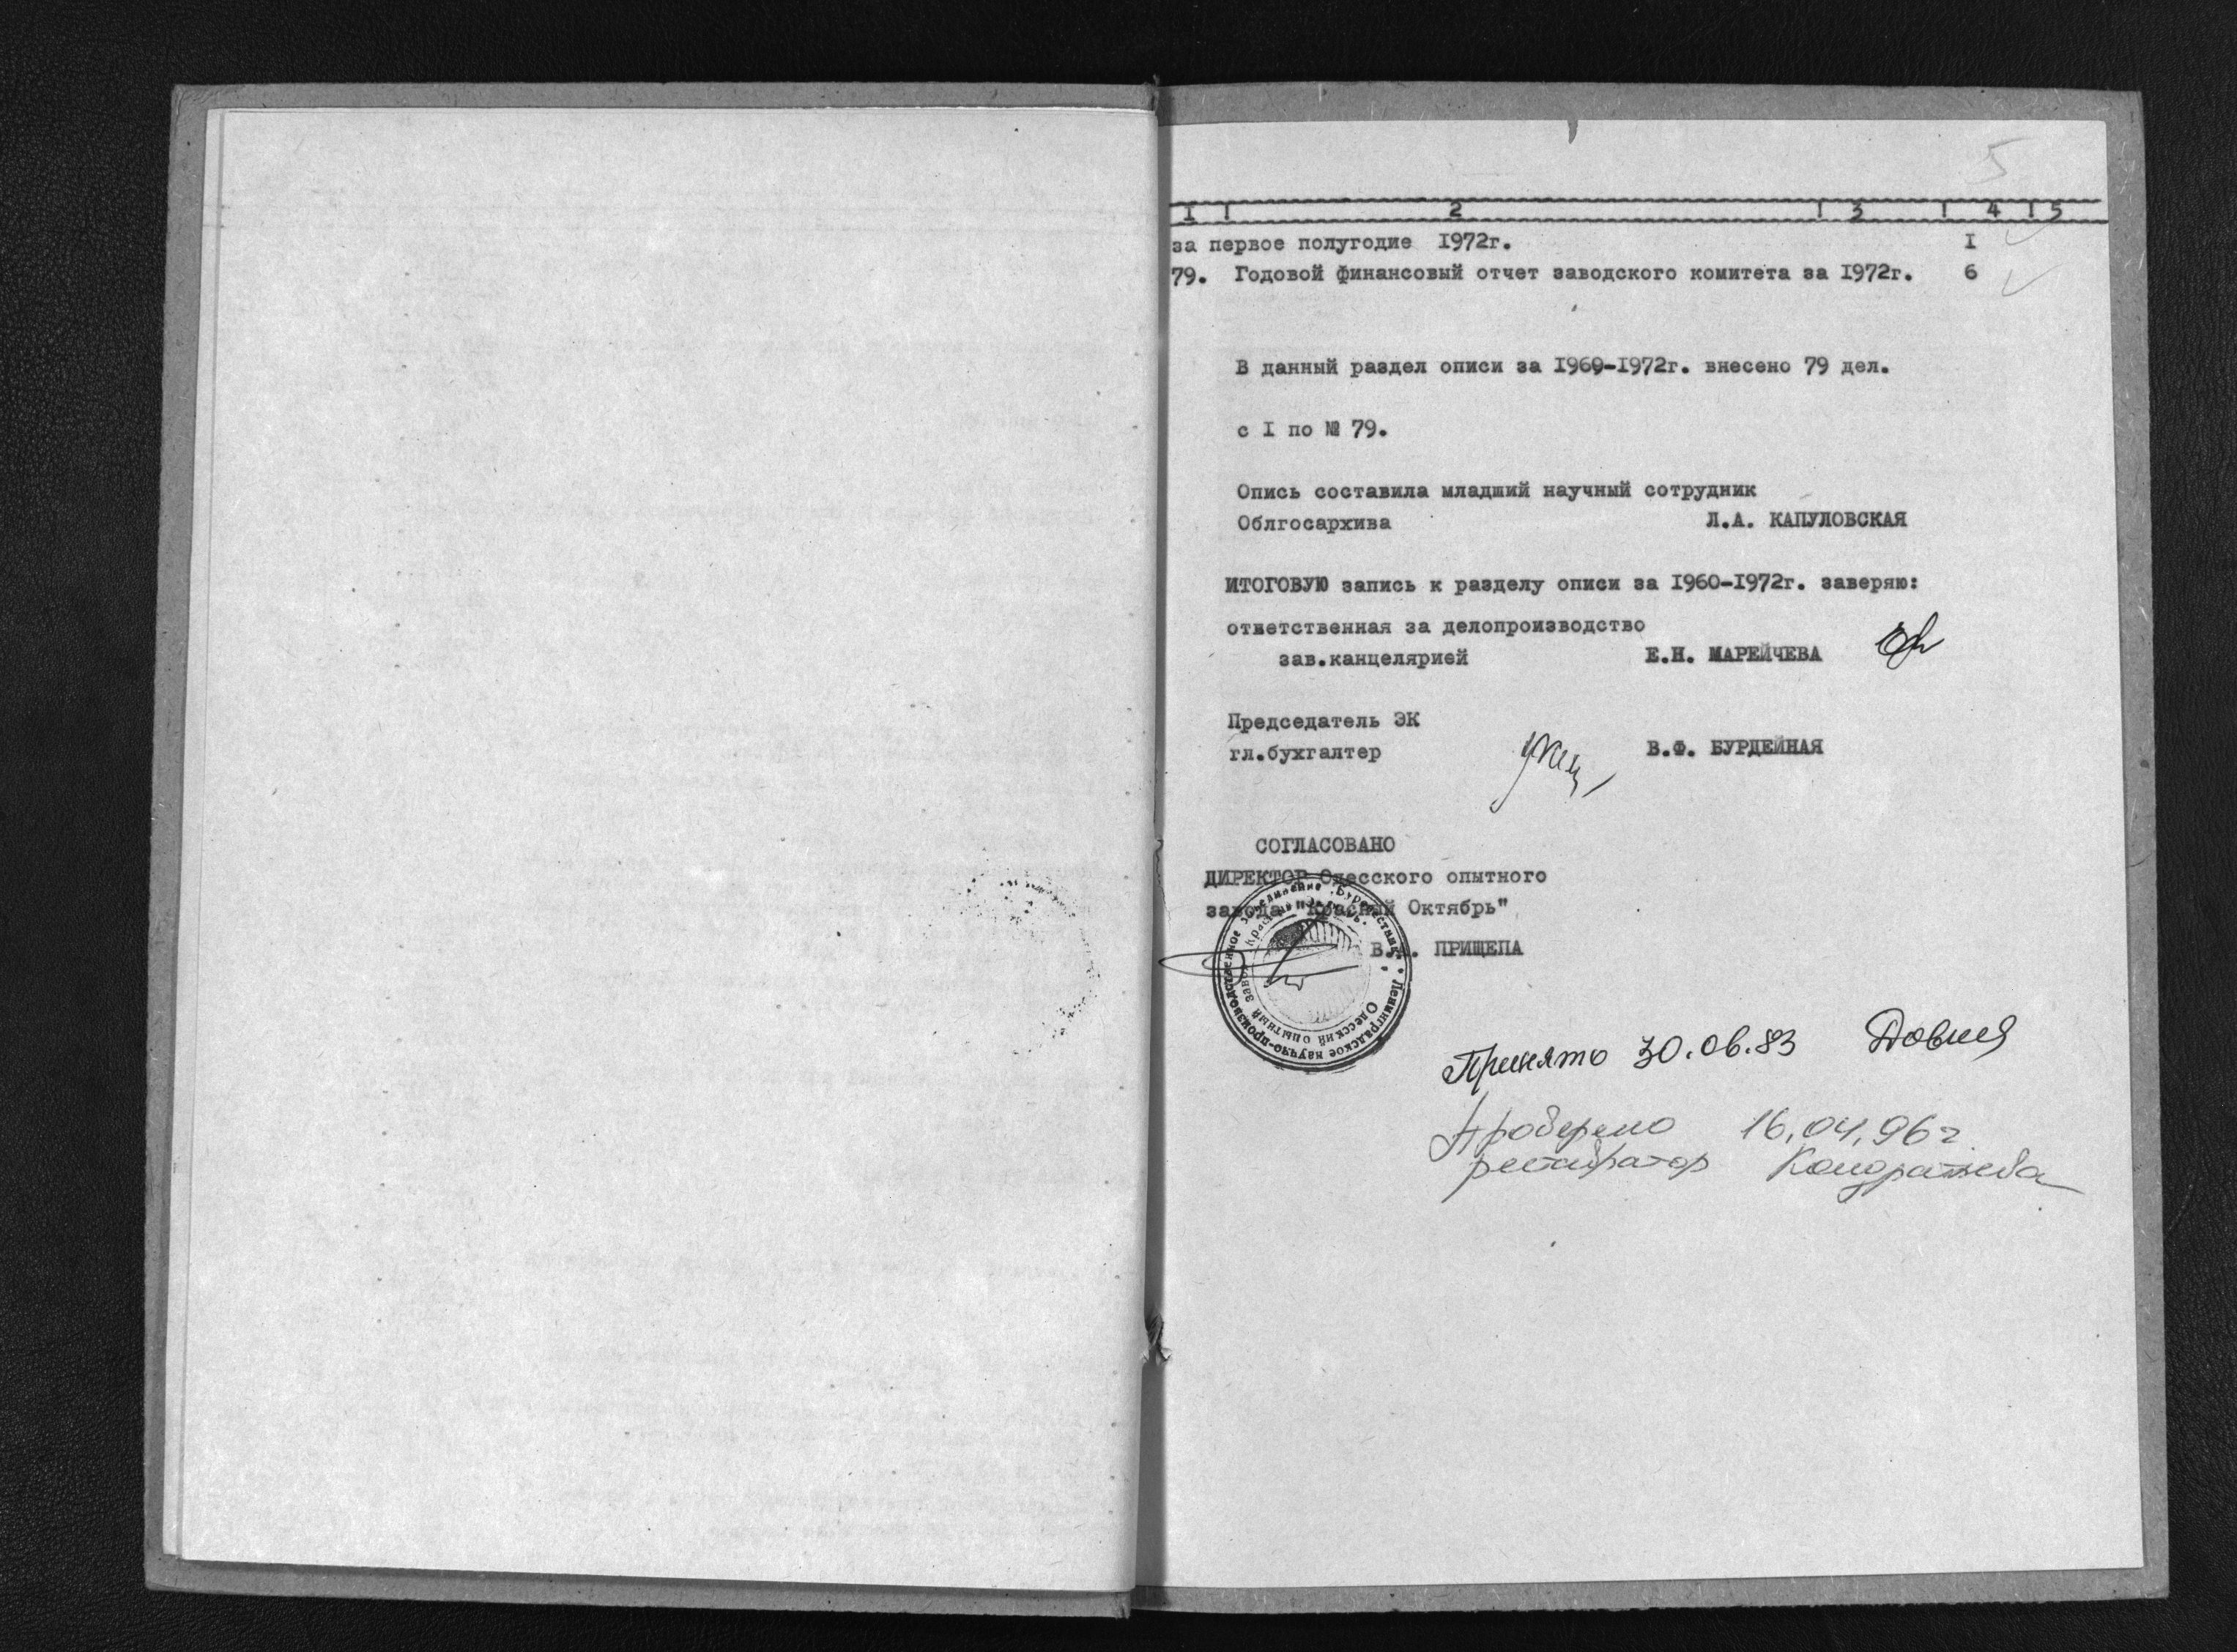 5
I ! 2 ! 3 ! 4 ! 5
за первое полугодие 1972г. I
79. Годовой финансовый отчет заводского комитета за 1972г. 6
В данный раздел описи за 1960-1972г. внесено 79 дел.
с I по № 79.
Опись составила младший научный сотрудник
Облгосархива Л.А. КАПУЛОВСКАЯ
ИТОГОВУЮ запись к разделу описи за 1960-1972г. заверяю:
ответственная за делопроизводство
зав.канцелярией Е.Н. МАРЕЙЧЕВА
Председатель ЭК
гл.бухгалтер В.Ф. БУРДЕЙНАЯ
СОГЛАСОВАНО
ДИРЕКТОР Одесского опытного
завода "Красный Октябрь"
ПРИЩЕПА
Ленинградское научно-производственное объединение
Одесский опытный завод Красный Октябрь
Принято 30.06.83
Проверено 16.04.96г
реставратор Кондратьева